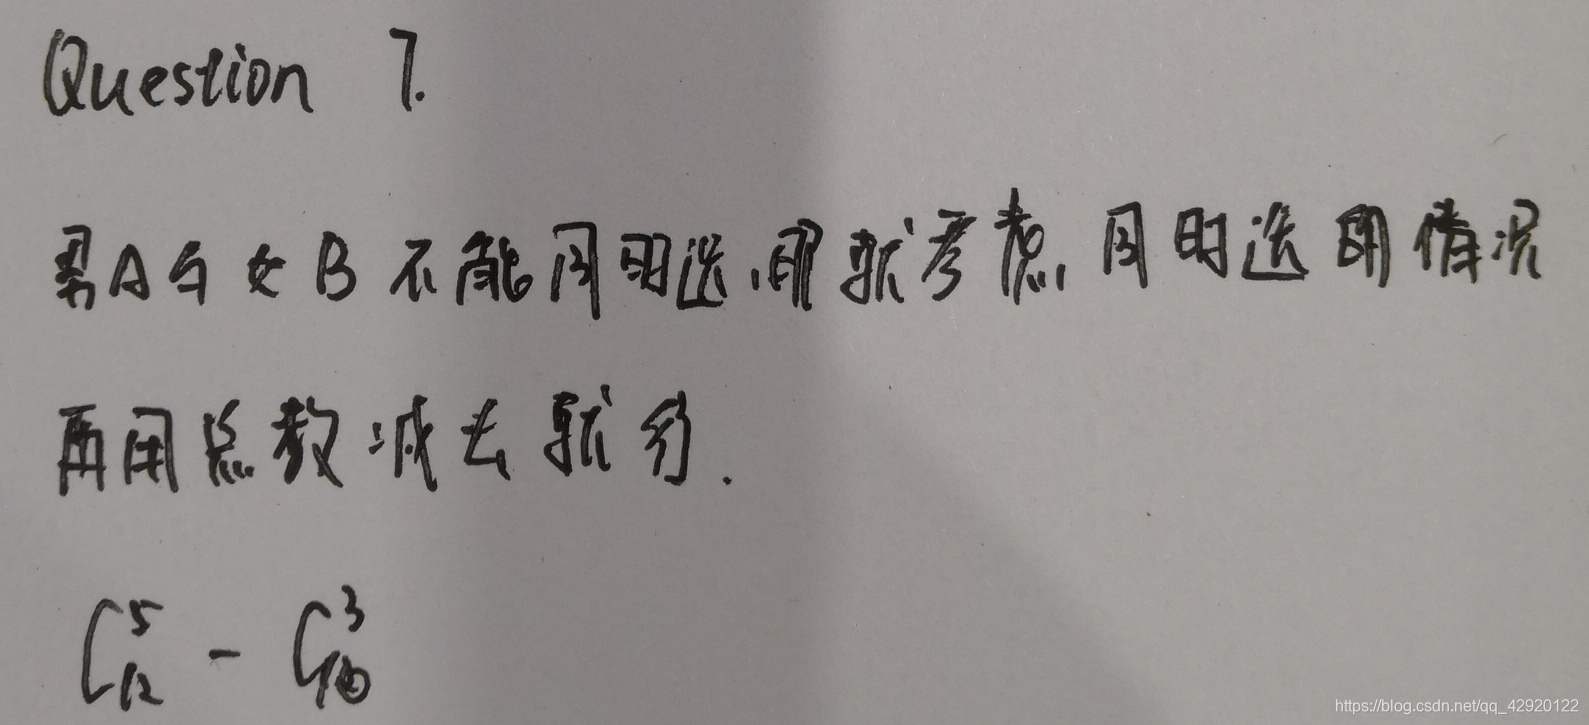 Question 7.
男A与女B不能同时选,那就考虑同时选的情况
再用总数减去就行.
C₁₂⁵ - C₁₀³
https://blog.csdn.net/qq_42920122